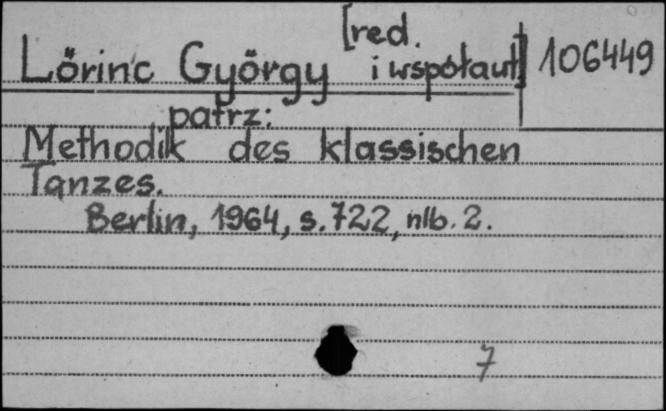 [red.
Lőrinc György i współaut]
106449
patrz:
Methodik des klassischen
Tanzes.
Berlin, 1964, s. 722, nlb. 2.
7